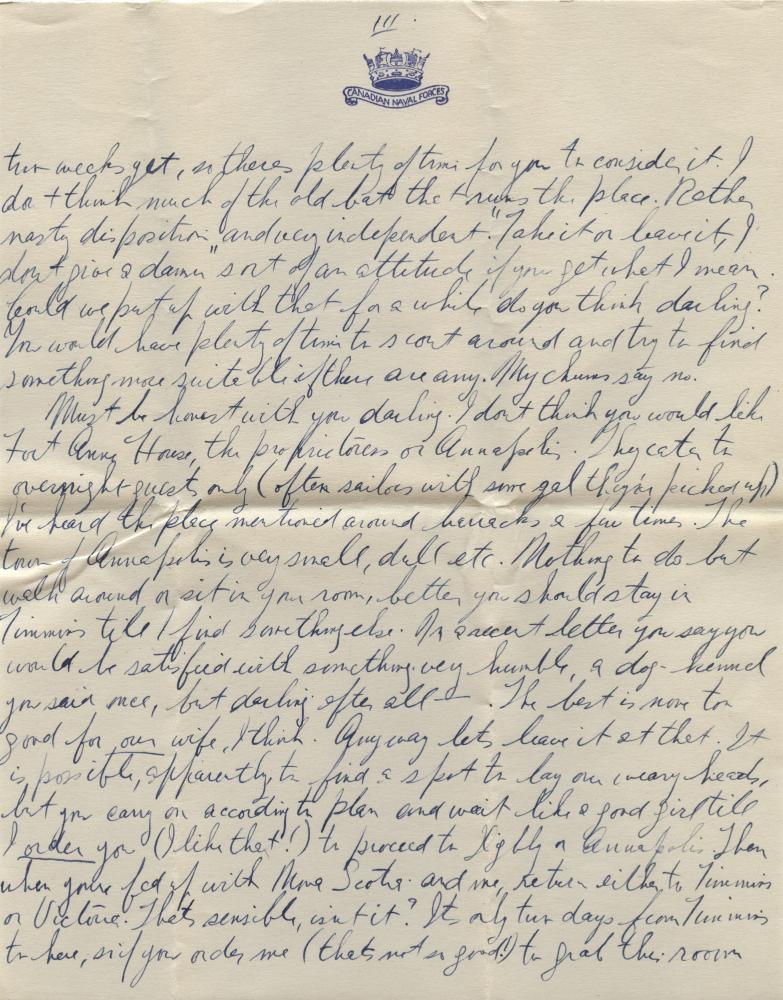 III.
CANADIAN NAVAL FORCES
two weeks yet, so theres plenty of time for you to consider it. I
don't think much of the old bat that runs the place. Rather
nasty disposition and very independent. "Take it or leave it, I
don't give a damn" sort of an attitude if you get what I mean.
Could we put up with that for a while do you think darling?
You would have plenty of time to scout around and try to find
something more suitable if there are any. My chums say no.
Must be honest with you darling. I don't think you would like
Fort Anne House, the proprietress or Annapolis. They cater to
overnight guests only (often sailors with some gal they've picked up)
I've heard the place mentioned around barracks a few times. The
town of Annapolis is very small, dull etc. Nothing to do but
walk around or sit in your room, better you should stay in
Timmins till I find something else. In a recent letter you say you
would be satisfied with something very humble, a dog-kennel
you said once, but darling after all — . The best is none too
good for our wife, I think. Anyway lets leave it at that. It
is possible, apparently, to find a spot to lay our weary heads,
but you carry on according to plan and wait like a good girl till
I order you (I like that!) to proceed to Digby or Annapolis. Then
when you're fed up with Nova Scotia and me, return either to Timmins
or Victoria. That's sensible, isn't it? Its only two days from Timmins
to here, so if you order me (thats not so good!) to grab this room